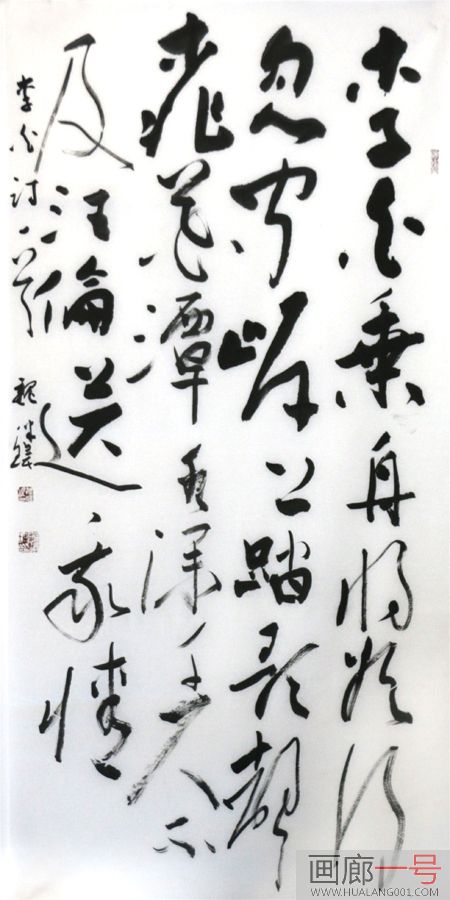 李白乘舟將欲行
忽聞岸上踏歌聲
桃花潭水深千尺不
及汪倫送我情
李白詩一首 魏
画廊一号
WWW.HUALANG001.COM